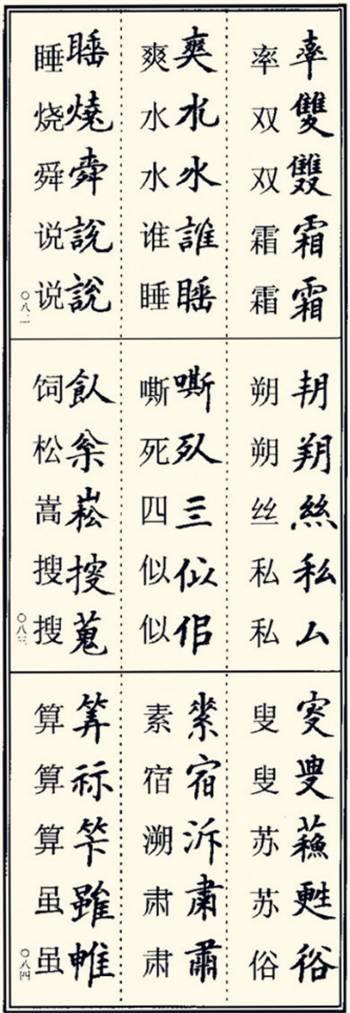 率雙霜霜
率双双霜霜
爽水水誰睡
爽水水谁睡
睡燒舜說說
睡烧舜说说
〇八二
絲私厶
朔朔丝私私
嘶亖佀
嘶死四似似
飤枀蒐
饲松嵩搜搜
〇八三
叜叟蘓甦
叟叟苏苏俗
宿泝肅
素宿溯肃肃
筭祘笇雖
算算算虽虽
〇八四